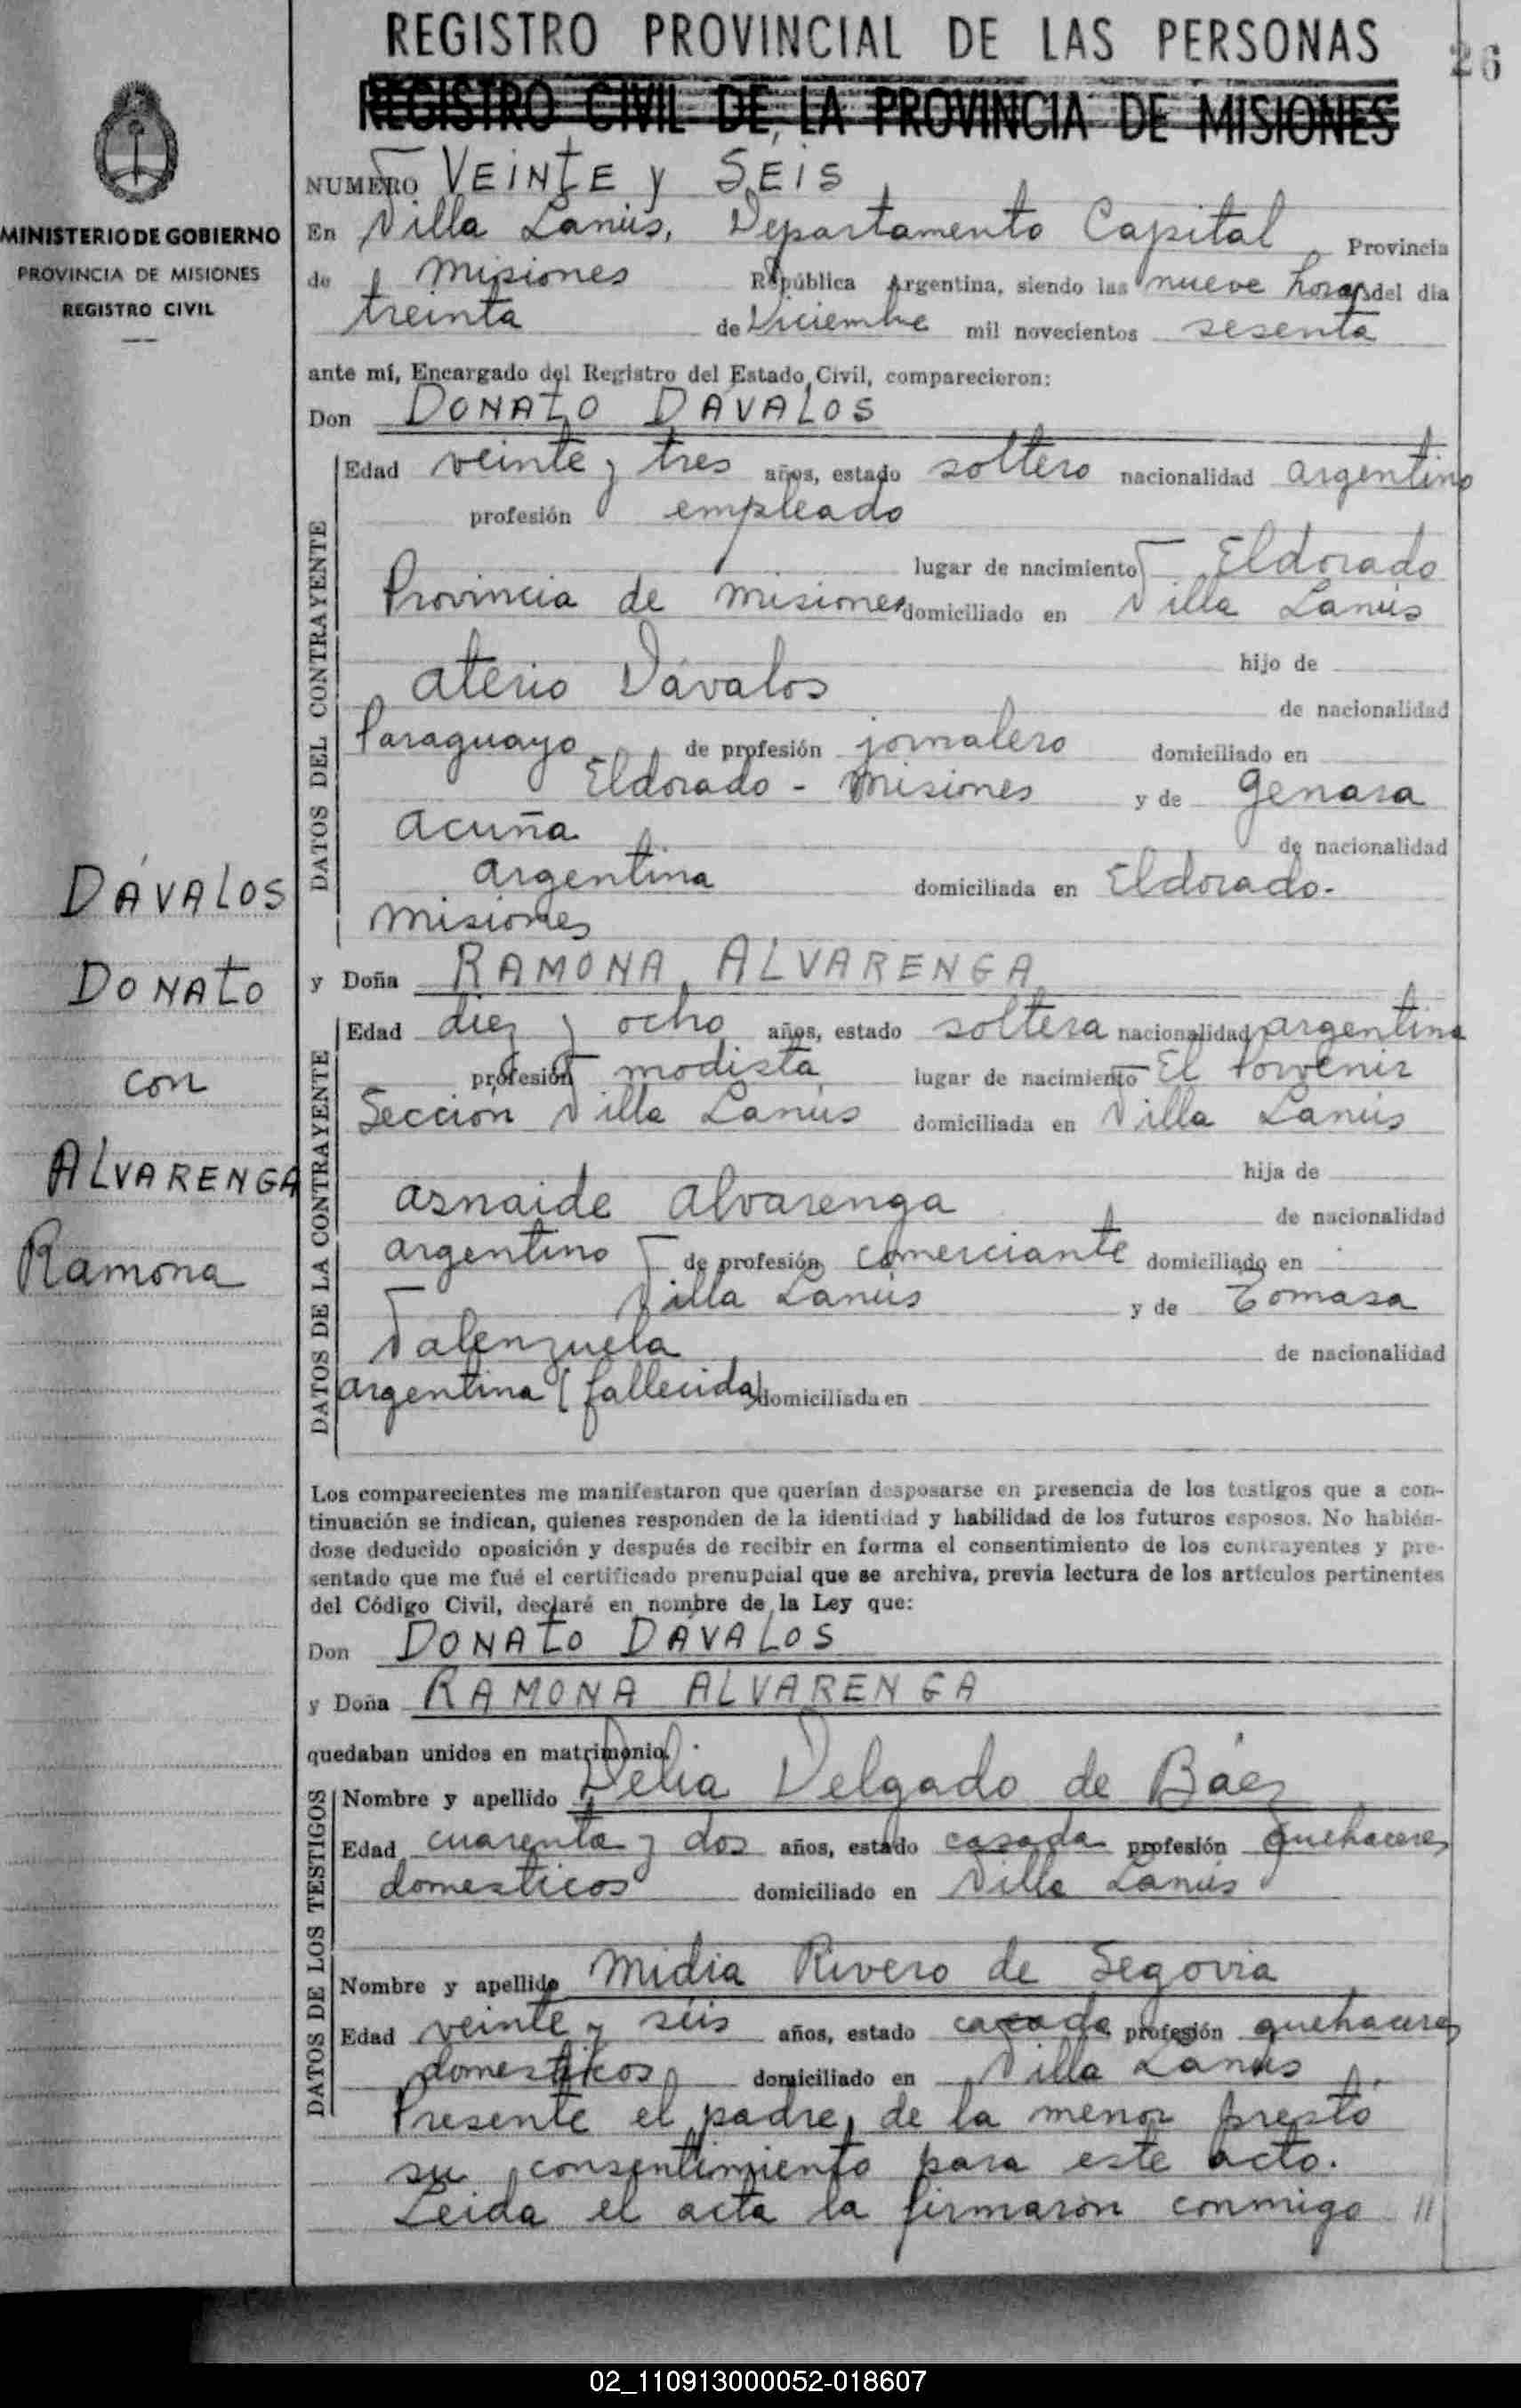 REGISTRO PROVINCIAL DE LAS PERSONAS
26
REGISTRO CIVIL DE LA PROVINCIA DE MISIONES
MINISTERIO DE GOBIERNO
PROVINCIA DE MISIONES
REGISTRO CIVIL
DÁVALOS
DONATO
con
ALVARENGA
Ramona
NUMERO VEINTE y SEIS
En Villa Lanús, Departamento Capital Provincia
de Misiones República Argentina, siendo las nueve horas del dia
treinta de Diciembre mil novecientos sesenta
ante mí, Encargado del Registro del Estado Civil, comparecieron:
Don DONATO DAVALOS
DATOS DEL CONTRAYENTE
Edad veinte y tres años, estado soltero nacionalidad argentino
profesión empleado
lugar de nacimiento Eldorado
Provincia de Misiones domiciliado en Villa Lanús
hijo de
aterio Dávalos
de nacionalidad
Paraguayo de profesión jornalero domiciliado en
Eldorado - Misiones y de Genara
acuña
de nacionalidad
argentina domiciliada en Eldorado-
Misiones
y Doña RAMONA ALVARENGA
DATOS DE LA CONTRAYENTE
Edad diez y ocho años, estado soltera nacionalidad argentina
profesión modista lugar de nacimiento El Porvenir
Sección Villa Lanús domiciliada en Villa Lanús
hija de
asnaide alvarenga
de nacionalidad
argentino de profesión comerciante domiciliado en
Villa Lanús y de Tomasa
Valenzuela
de nacionalidad
argentina (fallecida) domiciliada en
Los comparecientes me manifestaron que querían desposarse en presencia de los testigos que a con-
tinuación se indican, quienes responden de la identidad y habilidad de los futuros esposos. No habién-
dose deducido oposición y después de recibir en forma el consentimiento de los contrayentes y pre-
sentado que me fué el certificado prenupcial que se archiva, previa lectura de los artículos pertinentes
del Código Civil, declaré en nombre de la Ley que:
Don DONATO DÁVALOS
y Doña RAMONA ALVARENGA
quedaban unidos en matrimonio.
DATOS DE LOS TESTIGOS
Nombre y apellido Delia Delgado de Báez
Edad cuarenta y dos años, estado casada profesión quehaceres
domesticos domiciliado en Villa Lanús
Nombre y apellido Midia Rivero de Segovia
Edad veinte y séis años, estado casada profesión quehaceres
domesticos domiciliado en Villa Lanús
Presente el padre, de la menor prestó
su consentimiento para este acto.
Leida el acta la firmaron conmigo //
02_110913000052-018607